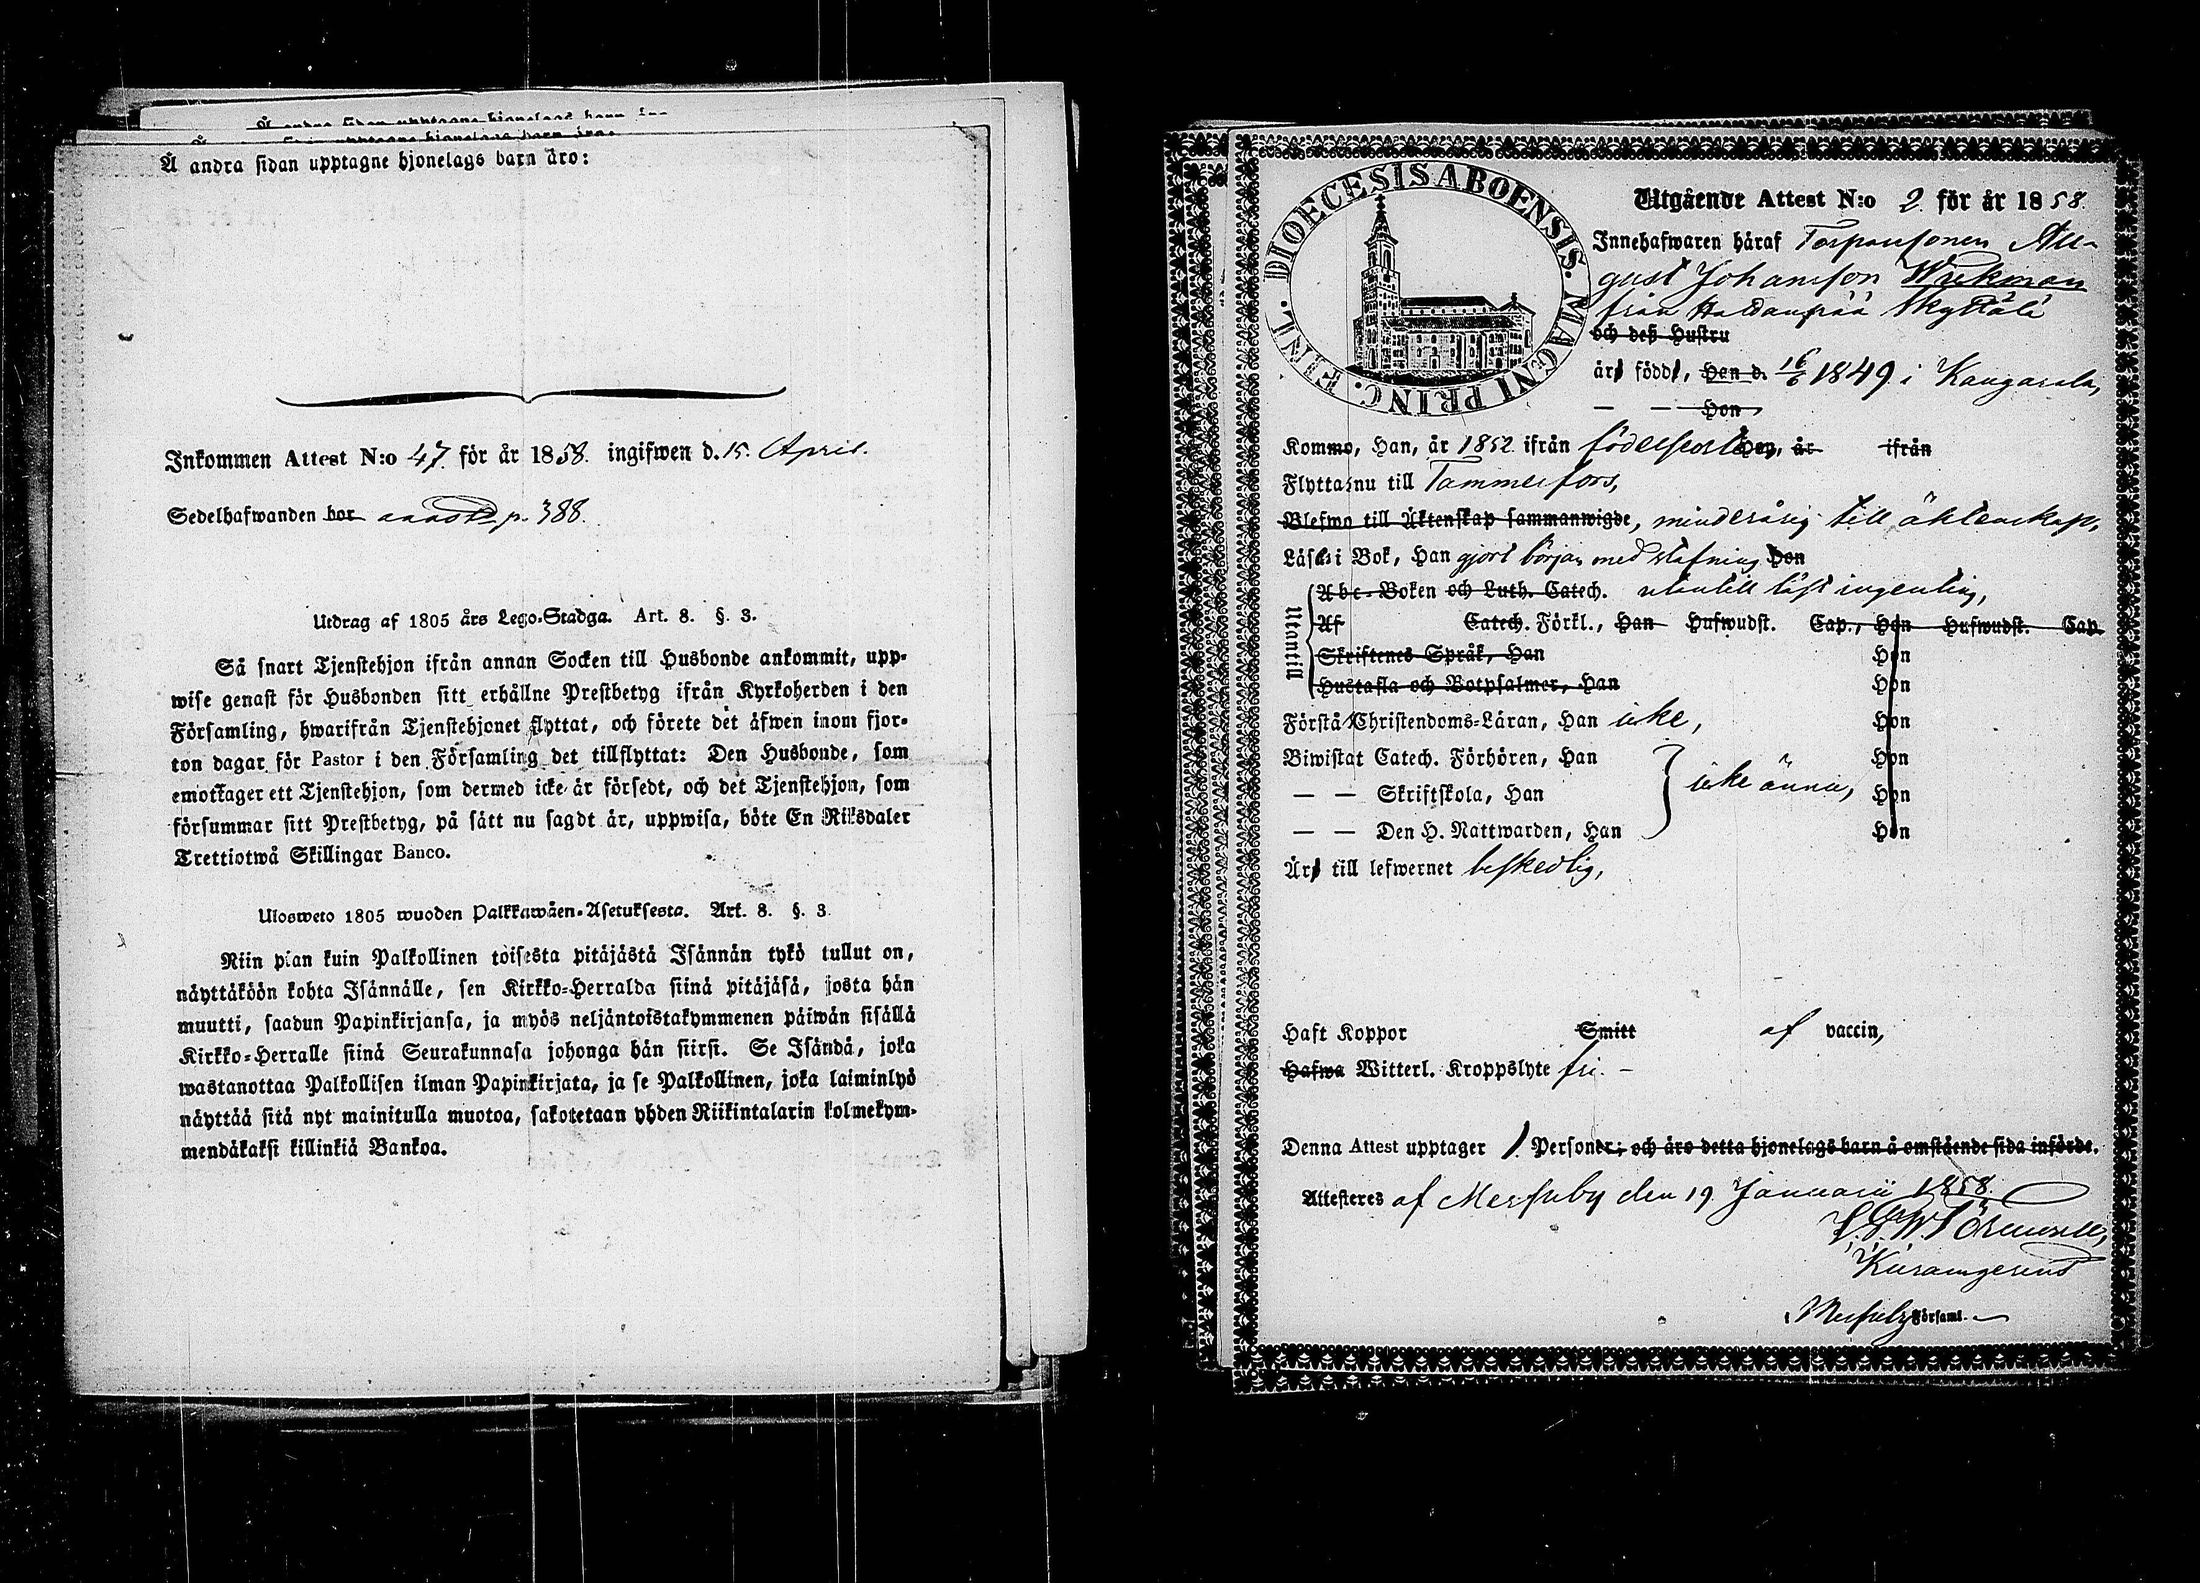 Å andra sidan upptagne hjonelags barn äro:
Inkommen Attest N:o 47. för år 1858. ingifwen d. 15. April.
Sedelhafwanden bor p. 388.
Utdrag af 1805 års Lego-Stadga. Art. 8. §. 3.
Så snart Tjenstehjon ifrån annan Socken till Husbonde ankommit, upp-
wise genast för Husbonden sitt erhållne Prestbetyg ifrån Kyrkoherden i den
Församling, hwarifrån Tjenstehjonet flyttat, och förete det äfwen inom fjor-
ton dagar för Pastor i den Församling det tillflyttat: Den Husbonde, som
emottager ett Tjenstehjon, som dermed icke är försedt, och det Tjenstehjon, som
försummar sitt Prestbetyg, på sätt nu sagdt är, uppwisa, böte En Riksdaler
Trettiotwå Skillingar Banco.
Ulosweto 1805 wuoden Palkkawäen-Asetuksesta. Art. 8. §. 3.
Niin pian kuin Palkollinen toisesta pitäjästä Isännän tykö tullut on,
näyttäköön kohta Isännälle, sen Kirkko-Herralda siinä pitäjäsä, josta hän
muutti, saadun Papinkirjansa, ja myös neljäntoistakymmenen päiwän sisällä
Kirkko-Herralle siinä Seurakunnasa johonga hän siirsi. Se Isändä, joka
wastanottaa Palkollisen ilman Papinkirjata, ja se Palkollinen, joka laiminlyö
näyttää sitä nyt mainitulla muotoa, sakotetaan yhden Riikintalarin kolmekym-
mendäkaksi killinkiä Bankoa.
DIOECESIS ABOENSIS. MAGNI PRINC. FINL.
Utgående Attest N:o 2. för år 1858.
Innehafwaren häraf Torparsonen Au-
gust Johansson Wirkman
från Haldanpää Skyttälä
och deß Hustru
äro födde, Han d. 16/6 1849. i Kangasala,
— — Hon
Kommo, Han, år 1852 ifrån födelseort Hon, år ifrån
Flytta nu till Tammerfors,
Blefwo till Äktenskap sammanwigde, minderårig till äktenskap,
Läsa i Bok, Han gjort början med stafning Hon
Utantill
Abc-Boken och Luth. Catech. utantill läst ingenting,
Af Catech. Förkl., Han Hufwudst. Cap., Hon Hufwudst. Cap.
Skriftenes Språk, Han Hon
Hustafla och Botpsalmer, Han Hon
Förstå Christendoms-Läran, Han icke, Hon
Biwistat Catech. Förhören, Han Hon
— — Skriftskola, Han icke ännu, Hon
— — Den H. Nattwarden, Han Hon
Äro till lefwernet beskedlig,
Haft Koppor Smitt af vaccin,
Hafwa Witterl. Kroppslyte fri. —
Denna Attest upptager 1. Personer; och äro detta hjonelags barn å omstående sida införde.
Attesteres af Messuby den 19 Januarii 1858.
Törnudd,
Messuby Församl.